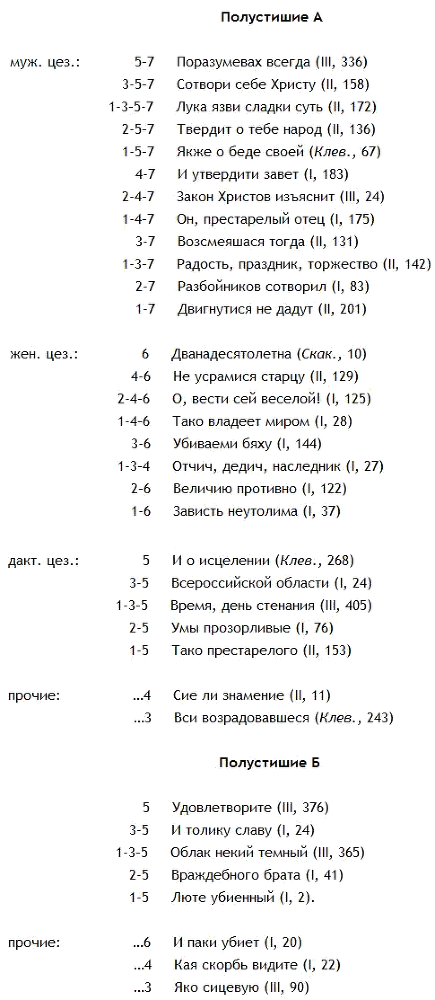 Полустишие А
муж. цез.: 5-7 Поразумевах всегда (III, 336)
3-5-7 Сотвори себе Христу (II, 158)
1-3-5-7 Лука язви сладки суть (II, 172)
2-5-7 Твердит о тебе народ (II, 136)
1-5-7 Якже о беде своей (Клев., 67)
4-7 И утвердити завет (I, 183)
2-4-7 Закон Христов изъяснит (III, 24)
1-4-7 Он, престарелый отец (I, 175)
3-7 Возсмеяшася тогда (II, 131)
1-3-7 Радость, праздник, торжество (II, 142)
2-7 Разбойников сотворил (I, 83)
1-7 Двигнутися не дадут (II, 201)
жен. цез.: 6 Дванадесятолетна (Скак., 10)
4-6 Не усрамися старцу (II, 129)
2-4-6 О, вести сей веселой! (I, 125)
1-4-6 Тако владеет миром (I, 28)
3-6 Убиваеми бяху (I, 144)
1-3-4 Отчич, дедич, наследник (I, 27)
2-6 Величию противно (I, 122)
1-6 Зависть неутолима (I, 37)
дакт. цез.: 5 И о исцелении (Клев., 268)
3-5 Всероссийской области (I, 24)
1-3-5 Время, день стенания (III, 405)
2-5 Умы прозорливые (I, 76)
1-5 Тако престарелого (II, 153)
прочие: ...4 Сие ли знамение (II, 11)
...3 Вси возрадовавшеся (Клев., 243)
Полустишие Б
5 Удовлетворите (III, 376)
3-5 И толику славу (I, 24)
1-3-5 Облак некий темный (III, 365)
2-5 Враждебного брата (I, 41)
1-5 Люте убиенный (I, 2).
прочие: ...6 И паки убиет (I, 20)
...4 Кая скорбь видите (I, 22)
...3 Яко сицевую (III, 90)